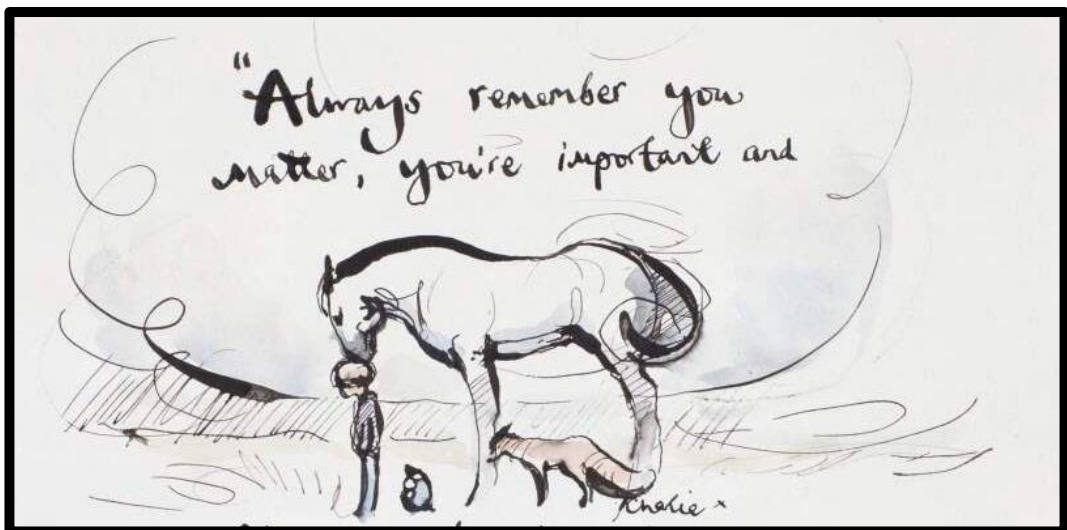 "Always remember you
matter, you're important and
Charlie x